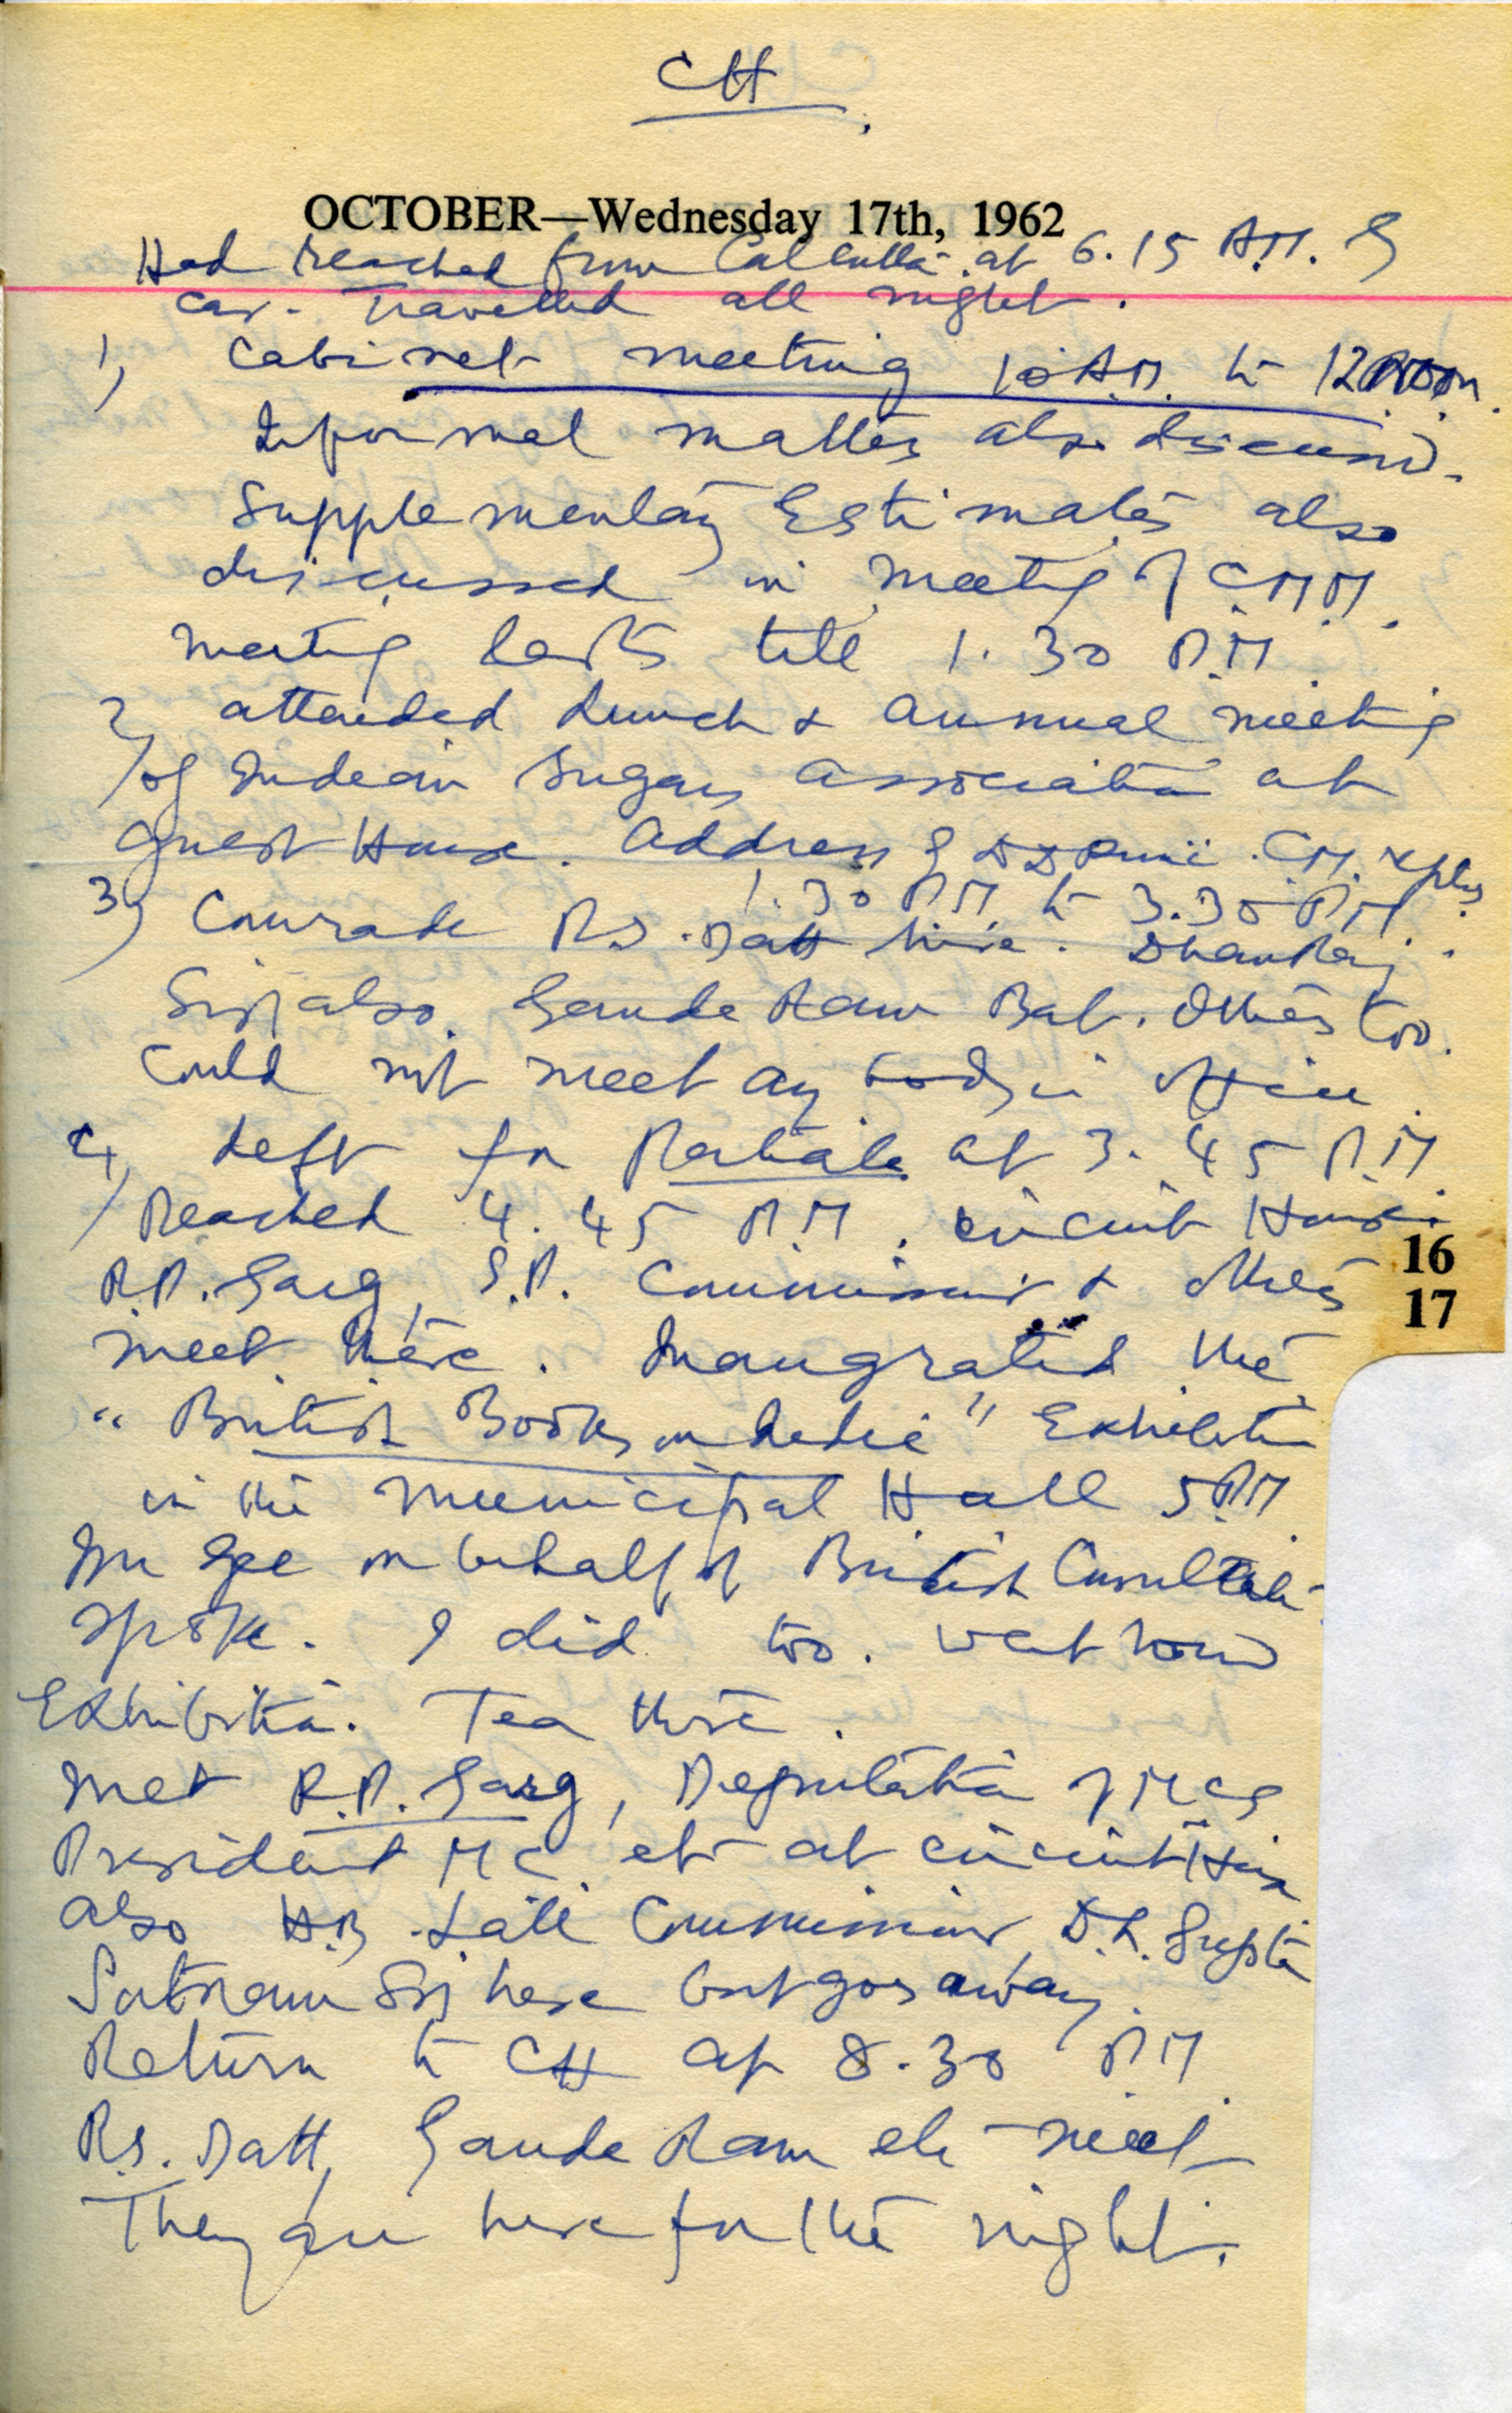 CH
OCTOBER—Wednesday 17th, 1962
Had reached from Calcutta at 6.15 A.M. By
car. Travelled all night.
1) Cabinet meeting 10 A.M. to 12 Noon.
Informal matters also discussed.
Supplementary Estimates also
discussed in meeting of CMM.
meeting lasts till 1.30 P.M.
2) attended Lunch & annual meeting
of Indian Sugar Association at
Guest House. Address by D D Puri. C.M. replies
1.30 P.M. to 3.30 P.M.
3) Comrade R.S. Datt here. Dhanraj
Singh also. Gaunde Ram Bab. Others too.
Could not meet any body in office.
4) Left for Patiala at 3.45 P.M.
Reached 4.45 P.M. circuit House
16
R.P. Garg, S.P. Commissioner & others
17
meet there. Inaugrated the
"British Books on India" Exhibition
in the Municipal Hall 5 P.M.
on behalf of British
spoke. I did too. Went round
Exhibition. Tea there.
Met R.P. Garg, Deputation of MCs
President MC etc at circuit House
also H.B. Lall Commissioner, D.L. Gupta
Satnam Singh here but goes away.
Return to CH at 8.30 P.M.
R.S. Datt, Gaunde Ram etc meet
They are here for the night.